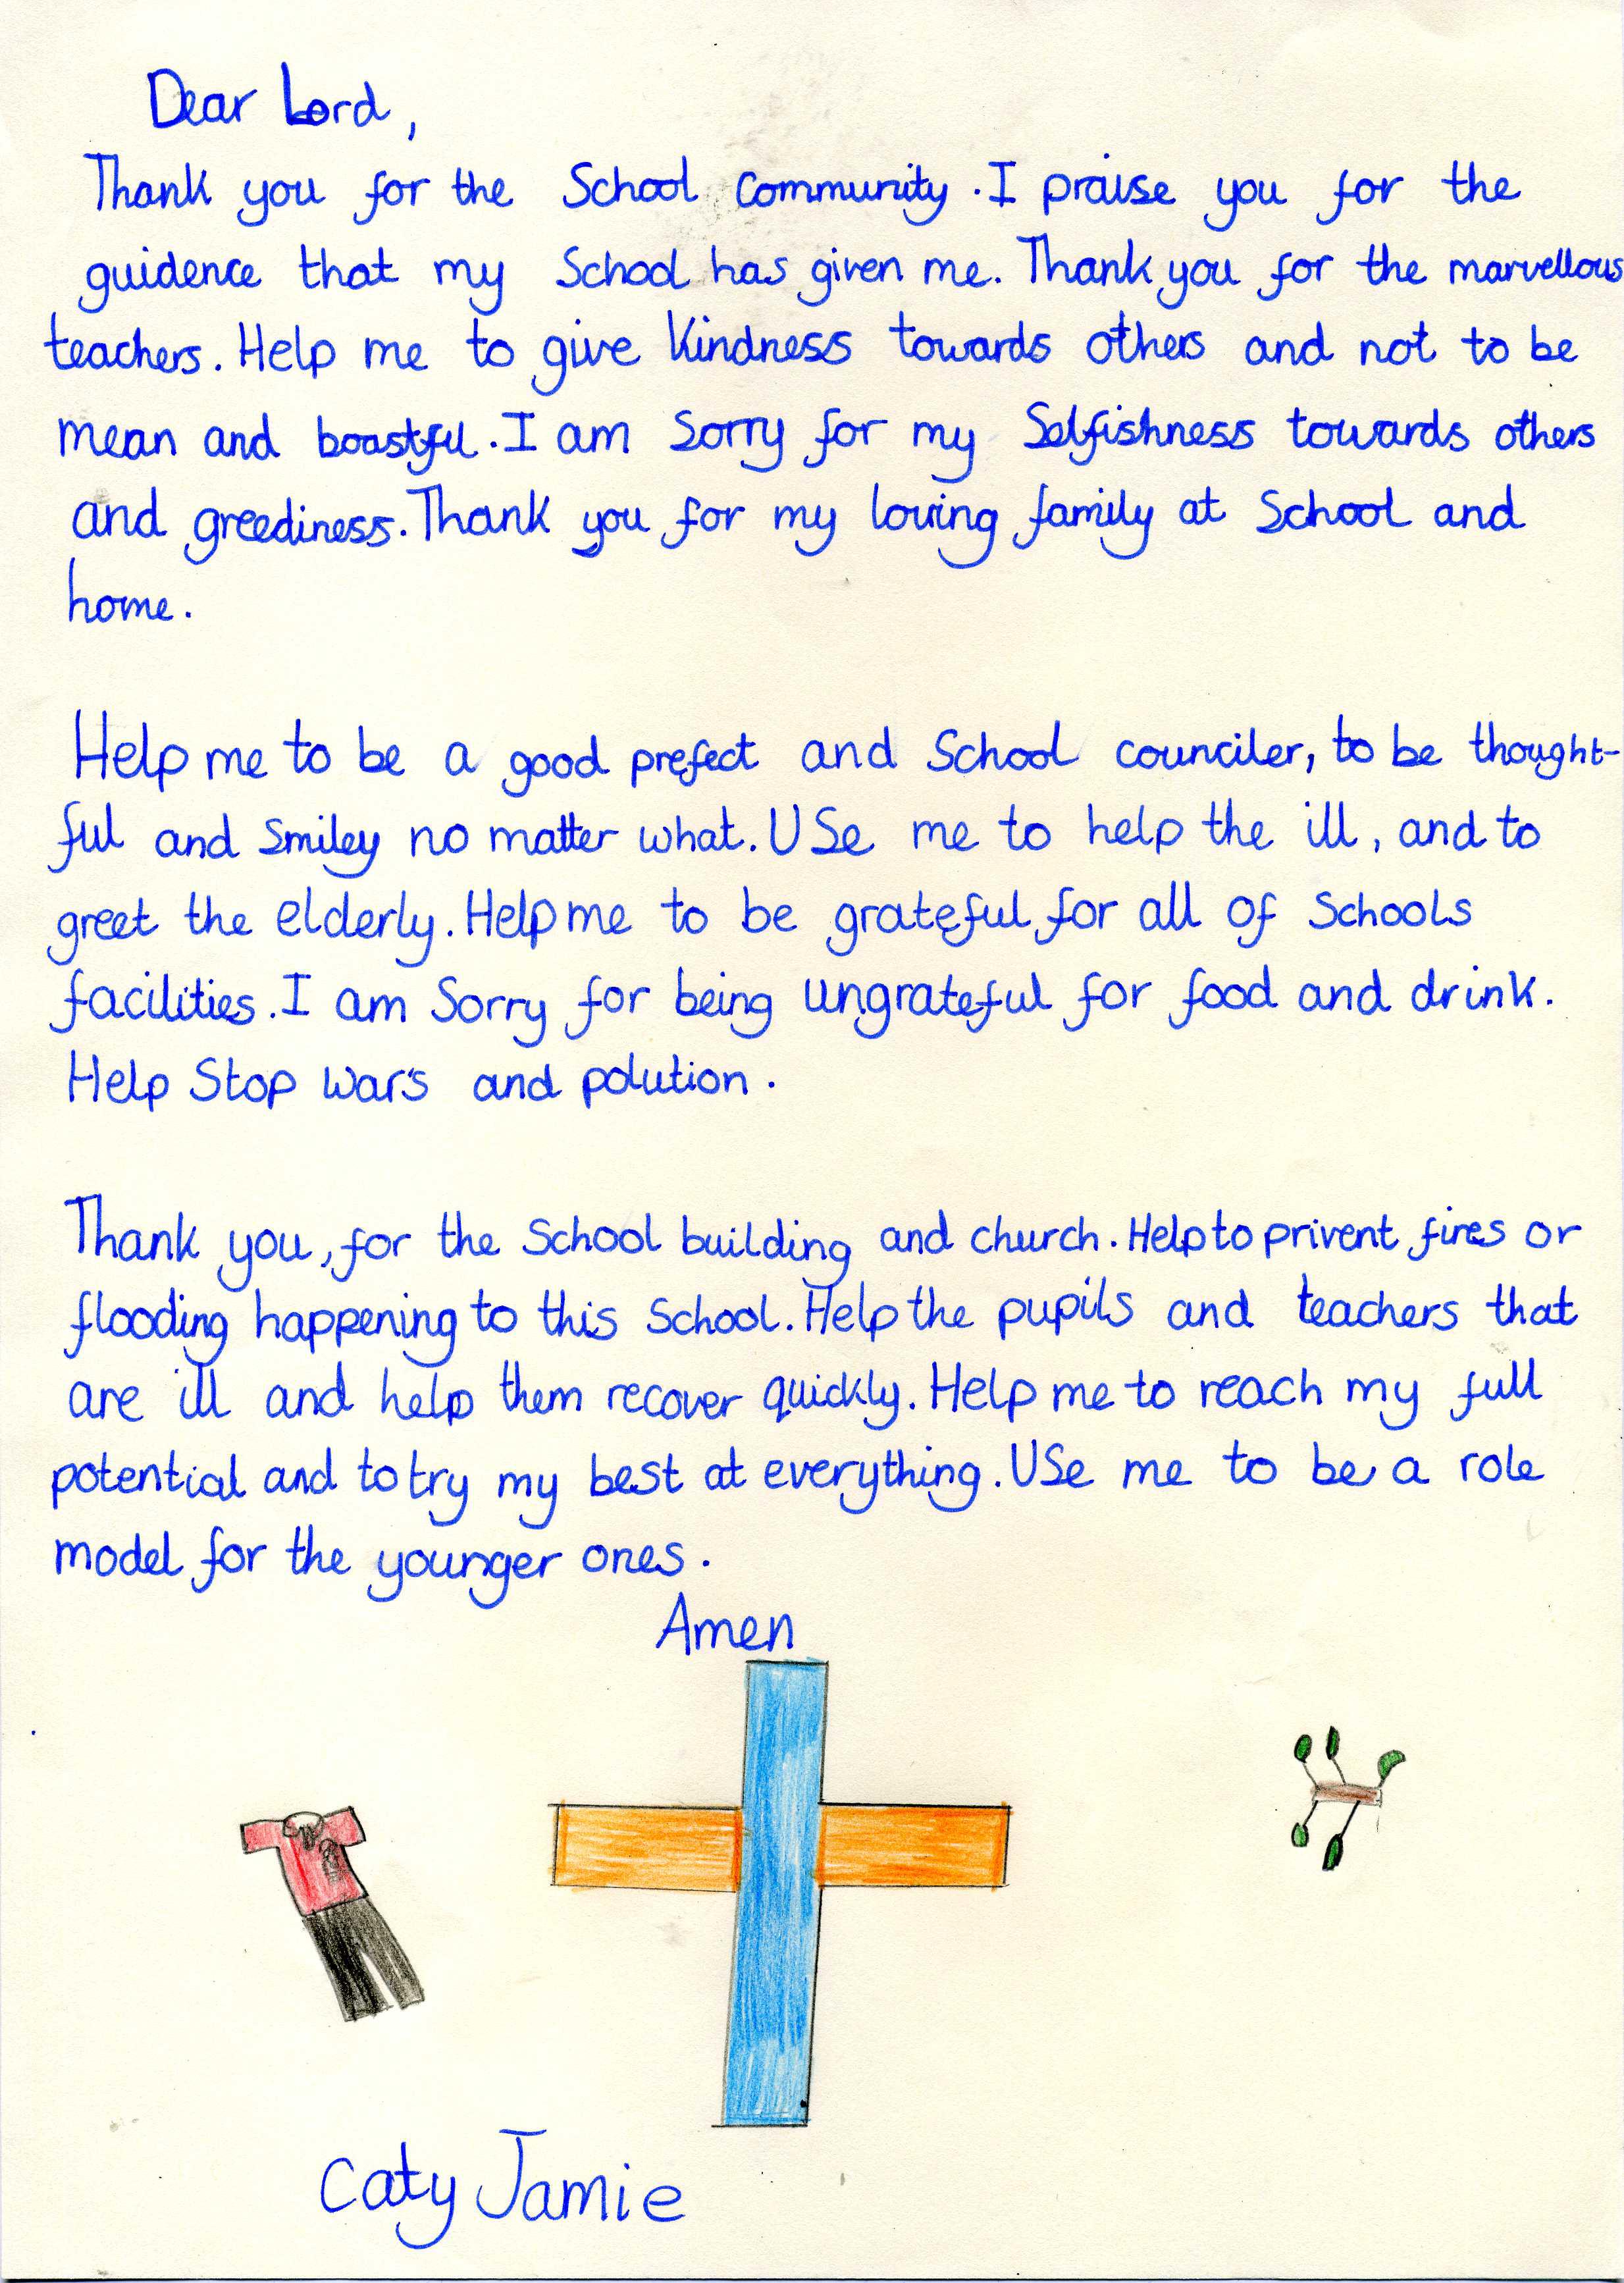 Dear Lord,
Thank you for the School Community. I praise you for the
guidence that my School has given me. Thank you for the marvellous
teachers. Help me to give Kindness towards others and not to be
mean and boastful. I am Sorry for my Selfishness towards others
and greediness. Thank you for my loving family at School and
home.
Help me to be a good prefect and School counciler, to be thought-
ful and Smiley no matter what. USe me to help the ill, and to
greet the elderly. Help me to be grateful for all of Schools
facilities. I am Sorry for being ungrateful for food and drink.
Help Stop wars and polution.
Thank you, for the School building and church. Help to privent fires or
flooding happening to this School. Help the pupils and teachers that
are ill and help them recover quickly. Help me to reach my full
potential and to try my best at everything. USe me to be a role
model for the younger ones.
Amen
Caty Jamie